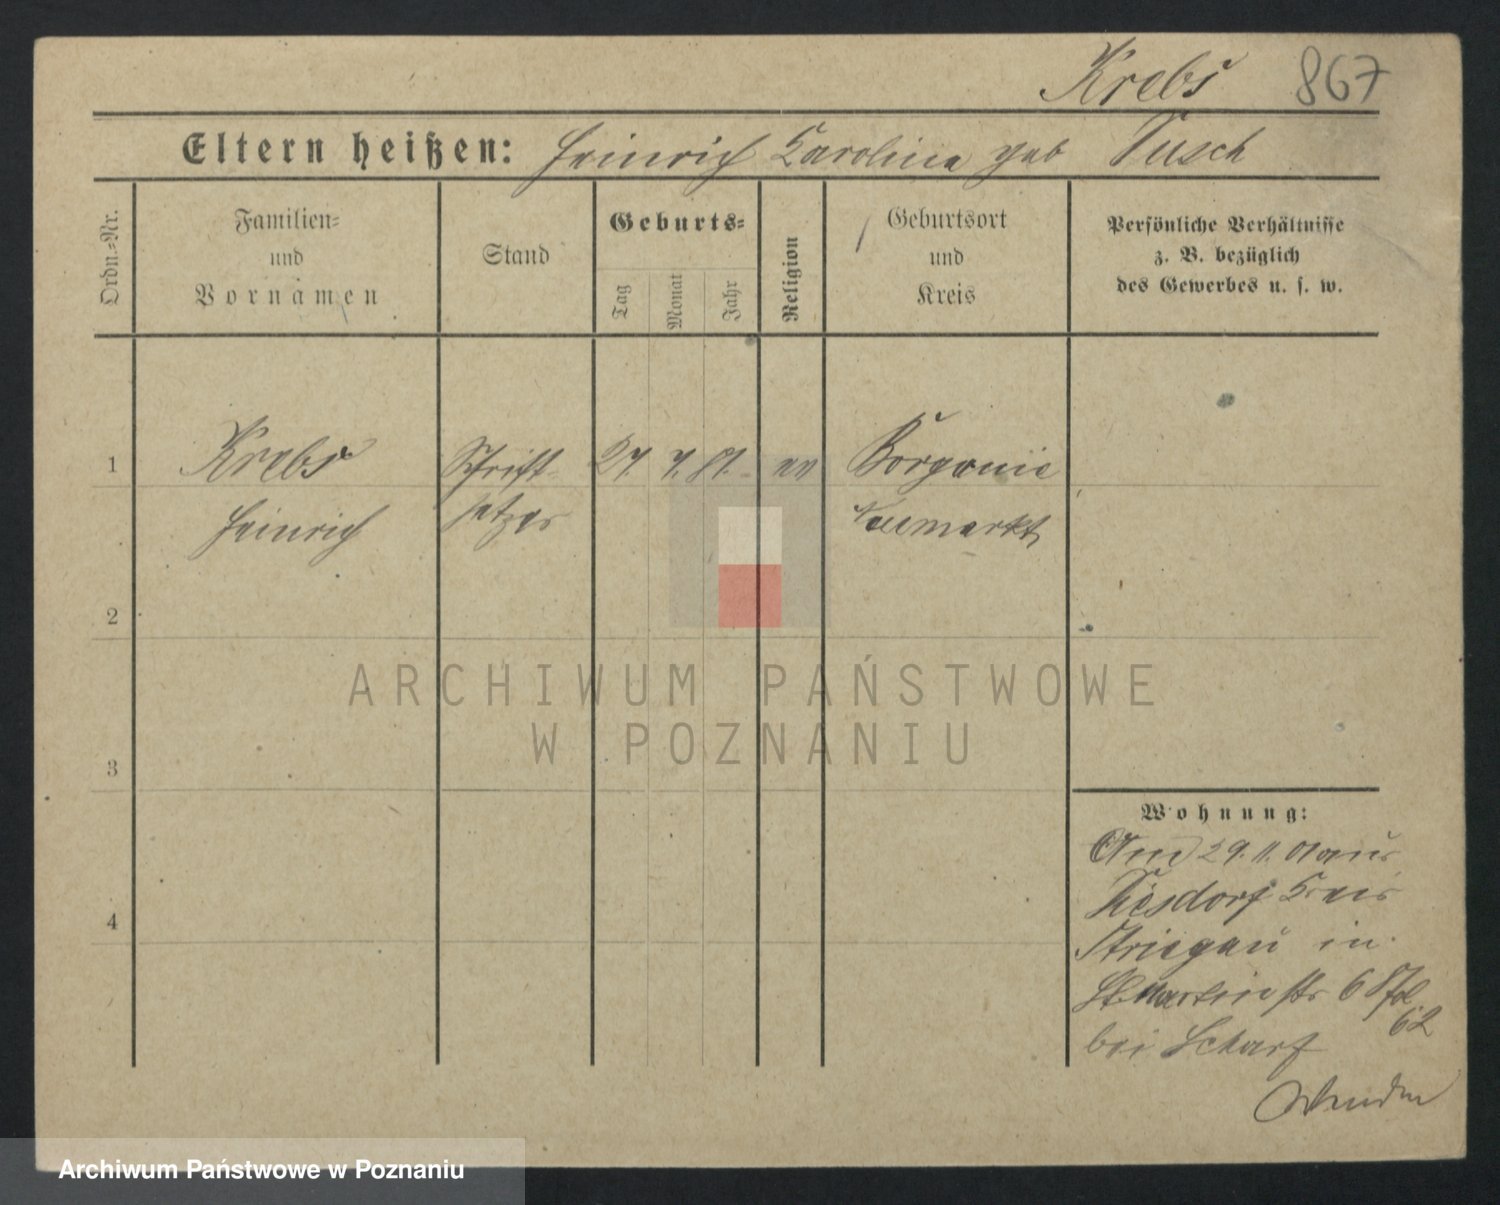 Krebs 867
Eltern heißen: Heinrich Karolina geb Tusch
Ordn.=Nr.
Familien=
und
Vornamen
Stand
Geburts=
Tag
Monat
Jahr
Religion
Geburtsort
und
Kreis
Persönliche Verhältnisse
z. B. bezüglich
des Gewerbes u. s. w.
1
Krebs Schrift- 27. 7. 81. ev Borganie
Heinrich setzer Neumarkt
2
ARCHIWUM PAŃSTWOWE
W POZNANIU
3
Wohnung:
Am 29. 11. 01 aus
Kreis
4
Striegau in
St Martinstr 68
62
bei Scharf
Archiwum Państwowe w Poznaniu